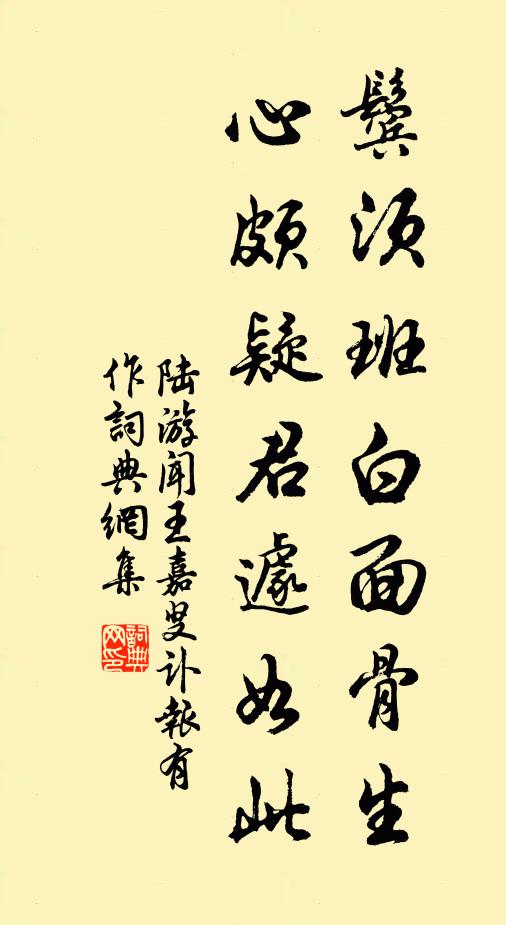 鬓须班白面骨生
心颇疑君遽如此
陆游闻王嘉叟讣报有
作詞典網集
詞典
网印